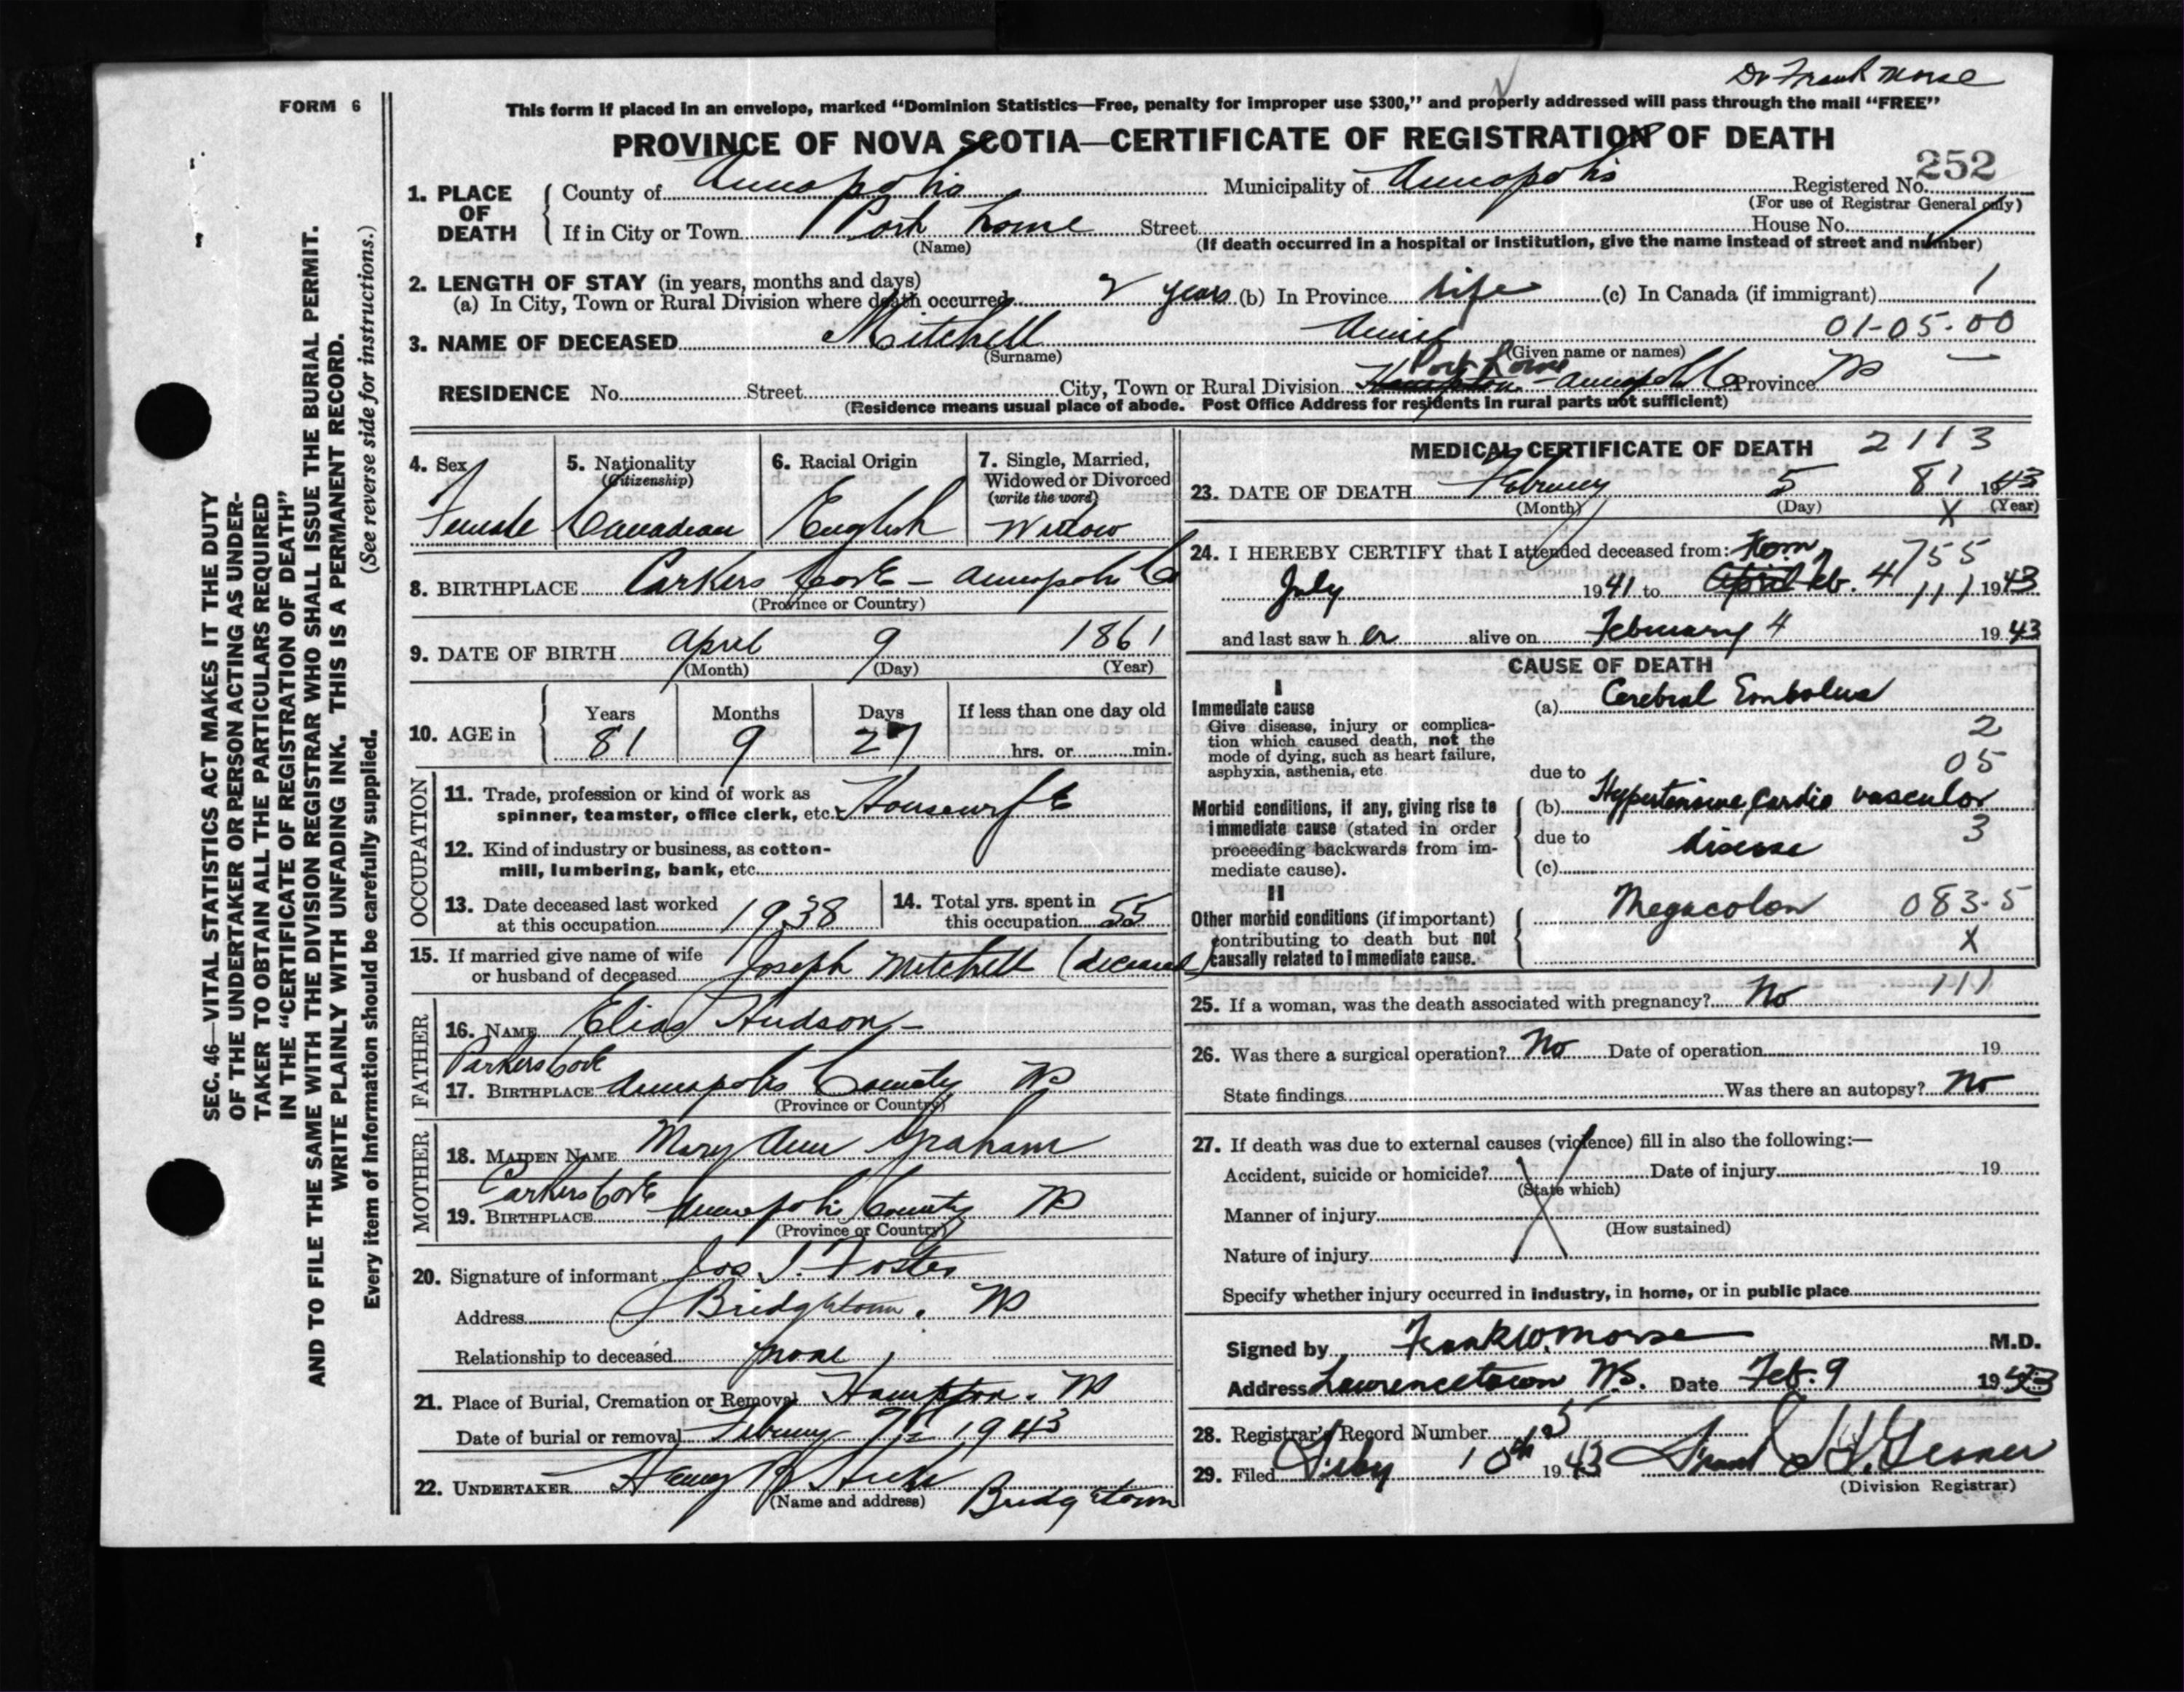 Dr Frank Morse
FORM 6
This form if placed in an envelope, marked “Dominion Statistics—Free, penalty for improper use $300,” and properly addressed will pass through the mail “FREE”
PROVINCE OF NOVA SCOTIA—CERTIFICATE OF REGISTRATION OF DEATH
252
1. PLACE OF DEATH
County of Annapolis Municipality of Annapolis Registered No.
(For use of Registrar General only)
If in City or Town Port Lorne Street House No.
(Name) (If death occurred in a hospital or institution, give the name instead of street and number)
2. LENGTH OF STAY (in years, months and days)
(a) In City, Town or Rural Division where death occurred 2 years (b) In Province Life (c) In Canada (if immigrant) 1
01-05-00
3. NAME OF DECEASED Mitchell Annie
(Surname) (Given name or names)
Port Lorne
RESIDENCE No. Street City, Town or Rural Division Hampton - Annapolis Co Province NS
(Residence means usual place of abode. Post Office Address for residents in rural parts not sufficient)
4. Sex
Female
5. Nationality
(Citizenship)
Canadian
6. Racial Origin
English
7. Single, Married,
Widowed or Divorced
(write the word)
Widow
8. BIRTHPLACE Parkers Cove - Annapolis Co
(Province or Country)
9. DATE OF BIRTH April 9 1861
(Month) (Day) (Year)
10. AGE in
Years Months Days If less than one day old
81 9 27 hrs. or min.
OCCUPATION
11. Trade, profession or kind of work as
spinner, teamster, office clerk, etc. Housewife
12. Kind of industry or business, as cotton-
mill, lumbering, bank, etc.
13. Date deceased last worked
at this occupation 1938
14. Total yrs. spent in
this occupation 55
15. If married give name of wife
or husband of deceased Joseph Mitchell (deceased)
FATHER
16. NAME Elias Hudson
Parkers Cove
17. BIRTHPLACE Annapolis County NS
(Province or Country)
MOTHER
18. MAIDEN NAME Mary Ann Graham
Parkers Cove
19. BIRTHPLACE Annapolis County NS
(Province or Country)
20. Signature of informant Jos I. Foster
Address Bridgetown. NS
Relationship to deceased none
21. Place of Burial, Cremation or Removal Hampton. NS
Date of burial or removal February 7th 1943
22. UNDERTAKER Hicks
(Name and address) Bridgetown
MEDICAL CERTIFICATE OF DEATH 2113
23. DATE OF DEATH February 5 81 1943
(Month) (Day) X (Year)
24. I HEREBY CERTIFY that I attended deceased from: From
755
July 1941 to April Feb. 4 111 1943
and last saw h er alive on February 4 19 43
CAUSE OF DEATH
I
Immediate cause
Give disease, injury or complica-
tion which caused death, not the
mode of dying, such as heart failure,
asphyxia, asthenia, etc
(a) Cerebral Embolus
2
05
due to
Morbid conditions, if any, giving rise to
immediate cause (stated in order
proceeding backwards from im-
mediate cause).
(b) Hypertensive Cardio vascular
due to disease 3
(c)
II
Other morbid conditions (if important)
contributing to death but not
causally related to immediate cause.
Megacolon 083.5
X
25. If a woman, was the death associated with pregnancy? No 111
26. Was there a surgical operation? No Date of operation 19
State findings Was there an autopsy? No
27. If death was due to external causes (violence) fill in also the following:—
Accident, suicide or homicide? Date of injury 19
(State which)
Manner of injury
(How sustained)
Nature of injury
Specify whether injury occurred in industry, in home, or in public place
Signed by Frank W. Morse M.D.
Address Lawrencetown N.S. Date Feb. 9 1943
28. Registrar's Record Number
29. Filed 10th 1943
(Division Registrar)
SEC. 46—VITAL STATISTICS ACT MAKES IT THE DUTY
OF THE UNDERTAKER OR PERSON ACTING AS UNDER-
TAKER TO OBTAIN ALL THE PARTICULARS REQUIRED
IN THE “CERTIFICATE OF REGISTRATION OF DEATH”
AND TO FILE THE SAME WITH THE DIVISION REGISTRAR WHO SHALL ISSUE THE BURIAL PERMIT.
WRITE PLAINLY WITH UNFADING INK. THIS IS A PERMANENT RECORD.
Every item of information should be carefully supplied. (See reverse side for instructions.)